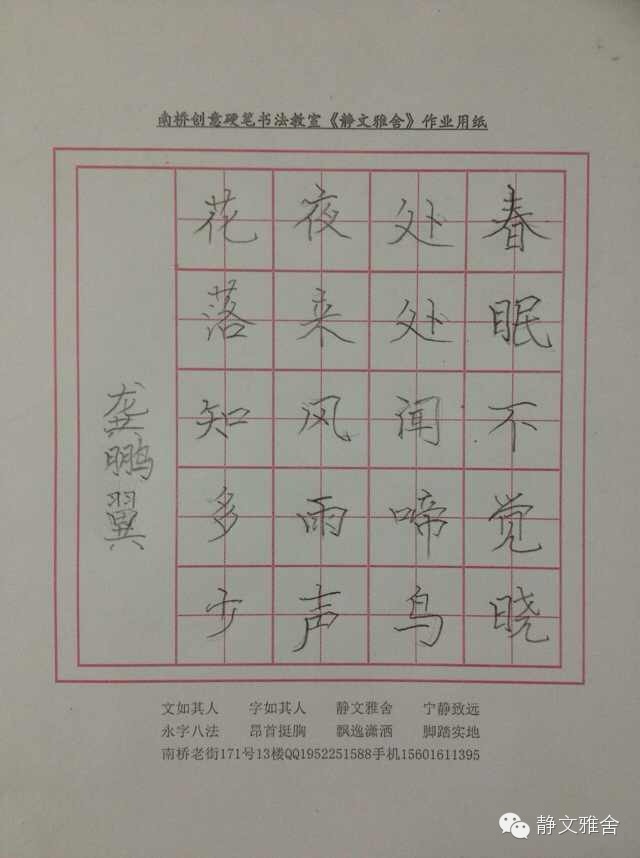 南桥创意硬笔书法教室《静文雅舍》作业用纸
春眠不觉晓
处处闻啼鸟
夜来风雨声
花落知多少
龚鹏翼
文如其人 字如其人 静文雅舍 宁静致远
永字八法 昂首挺胸 飘逸潇洒 脚踏实地
南桥老街171号13楼QQ1952251588手机15601611395
静文雅舍